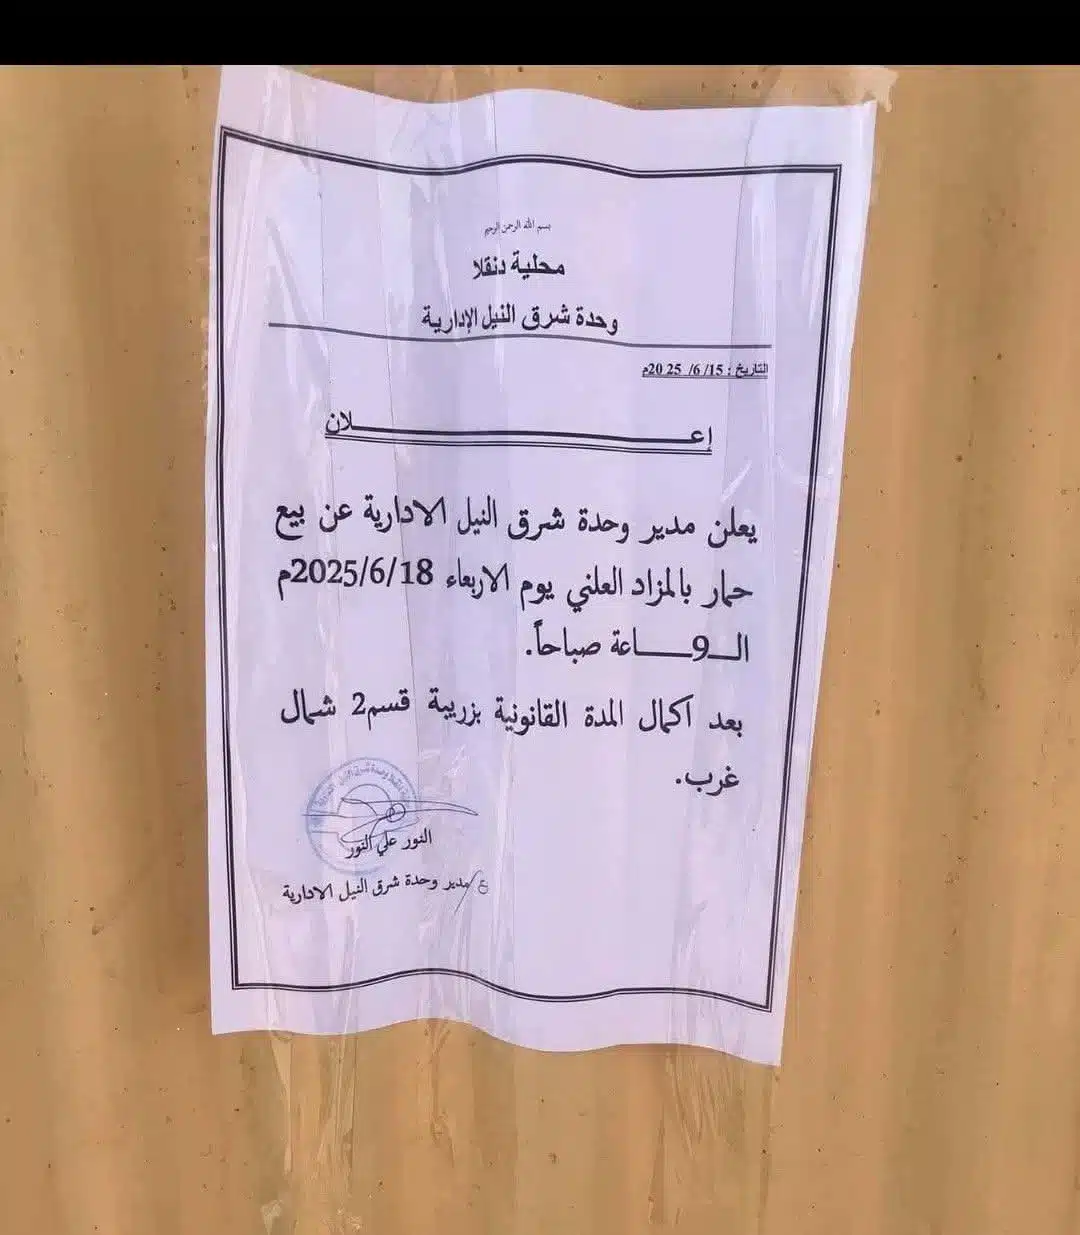 بسم الله الرحمن الرحيم
محلية دنقلا
وحدة شرق النيل الإدارية
التاريخ : 15/ 6/ 2025م
إعـــــــــــــلان
يعلن مدير وحدة شرق النيل الادارية عن بيع
حمار بالمزاد العلني يوم الاربعاء 2025/6/18م
الـــ9ـــــاعة صباحاً.
بعد اكمال المدة القانونية بزريبة قسم2 شمال
غرب.
النور علي النور
ع/مدير وحدة شرق النيل الادارية